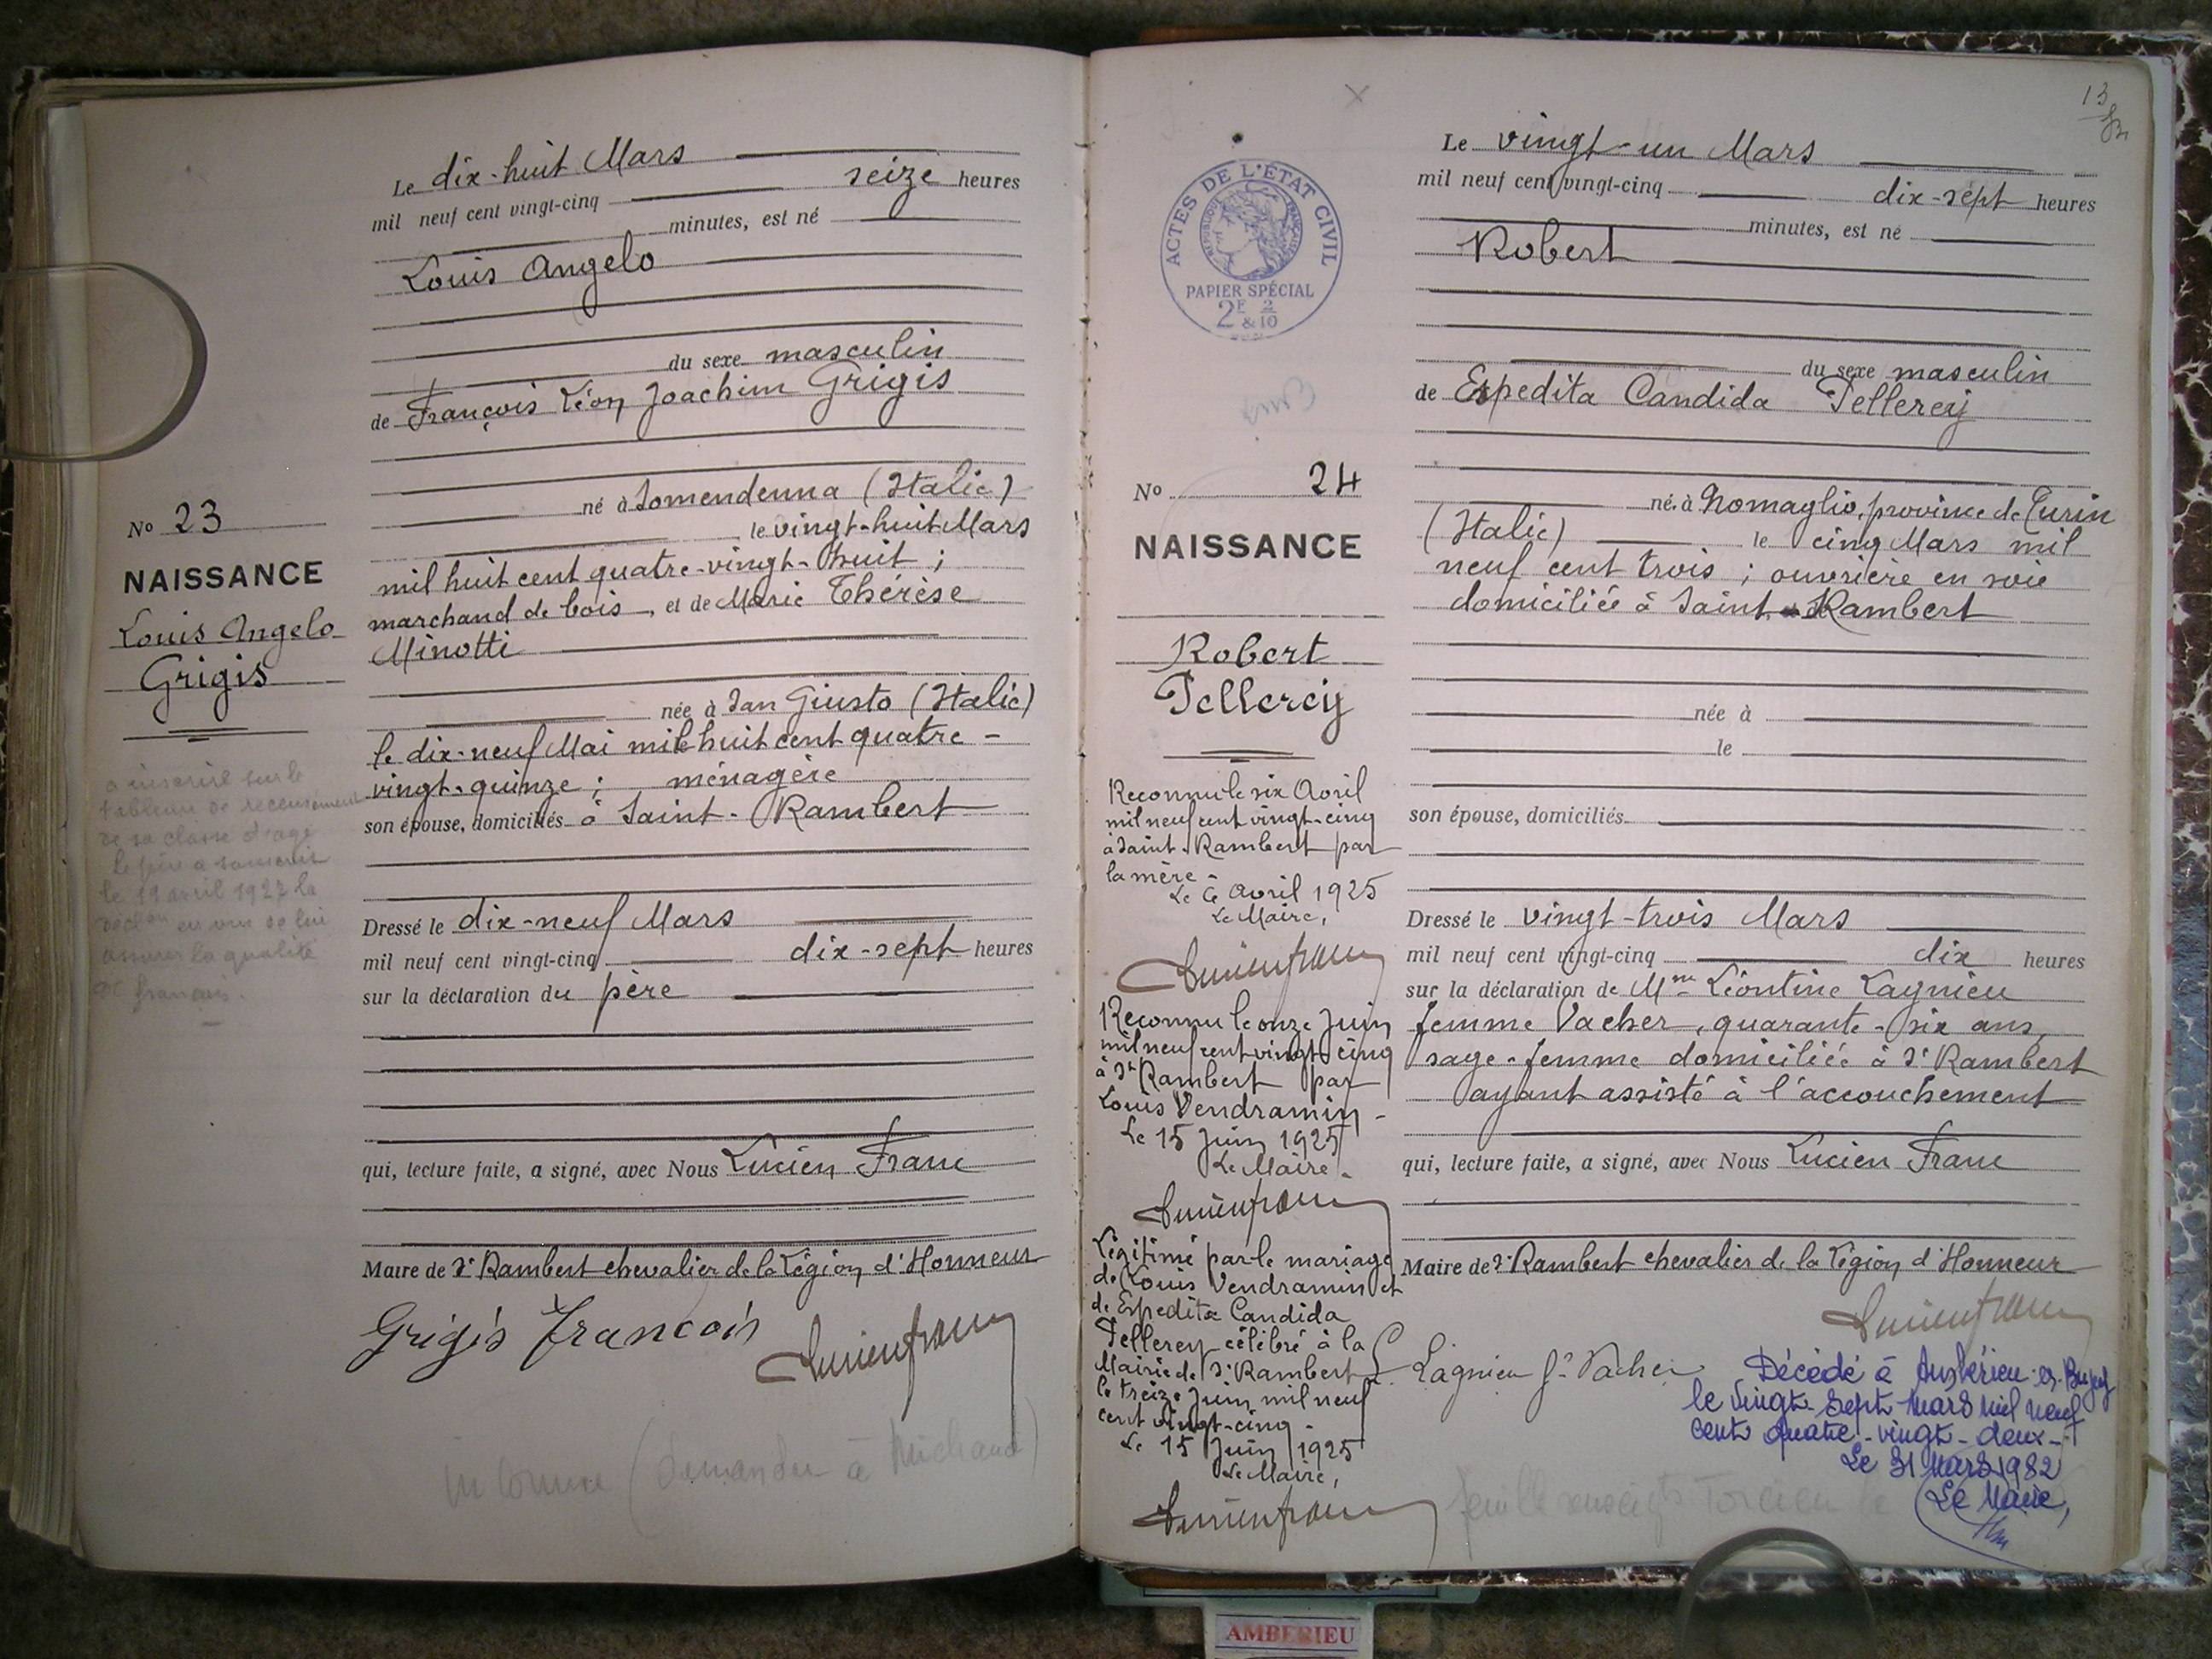 Le dix-huit Mars
mil neuf cent vingt-cinq seize heures
minutes, est né
Louis Angelo
du sexe masculin
de François Léon Joachim Grigis
né à Somendenna (Italie)
le vingt-huit Mars
mil huit cent quatre-vingt-huit ;
marchand de bois, et de Marie Thérèse
Minotti
née à San Giusto (Italie)
le dix-neuf Mai mil huit cent quatre-
vingt-quinze ; ménagère
son épouse, domiciliés à Saint-Rambert
Dressé le dix-neuf Mars
mil neuf cent vingt-cinq dix-sept heures
sur la déclaration du père
qui, lecture faite, a signé, avec Nous Lucien Franc
Maire de St Rambert chevalier de la Légion d'Honneur
Grigis François
(demander à Michaud)
No 23
NAISSANCE
Louis Angelo
Grigis
a inscrire sur le
tableau de recensement
de sa classe d'age
le père a souscrit
le 19 avril 1927 la
décl on en vue de lui
assurer la qualité
de français.
13
ACTES DE L'ÉTAT CIVIL
RÉPUBLIQUE FRANÇAISE
PAPIER SPÉCIAL
2F & 2/10
No 24
NAISSANCE
Robert
Pellerey
Reconnu le six Avril
mil neuf cent vingt-cinq
à Saint-Rambert par
la mère -
Le 6 Avril 1925
Le Maire,
Reconnu le onze Juin
mil neuf cent vingt-cinq
à St Rambert par
Louis Vendramin -
Le 15 Juin 1925
Le Maire -
Légitimé par le mariage
de Louis Vendramin et
de Espedita Candida
Pellerey célébré à la
Mairie de St Rambert
le treize Juin mil neuf
cent vingt-cinq -
Le 15 Juin 1925
Le Maire,
Le vingt-un Mars
mil neuf cent vingt-cinq dix-sept heures
minutes, est né
Robert
du sexe masculin
de Espedita Candida Pellerey
né à Nomaglio, province de Turin
(Italie) le cinq Mars mil
neuf cent trois ; ouvrière en soie
domiciliée à Saint-Rambert
née à
le
son épouse, domiciliés
Dressé le vingt-trois Mars
mil neuf cent vingt-cinq dix heures
sur la déclaration de Mme Léontine Lagnieu
femme Vacher, quarante-six ans,
sage-femme domiciliée à St Rambert
ayant assisté à l'accouchement
qui, lecture faite, a signé, avec Nous Lucien Franc
Maire de St Rambert chevalier de la Légion d'Honneur
L. Lagnieu fe Vacher
Décédé à Ambérieu-en-Bugey
le vingt-sept Mars mil neuf
cent quatre-vingt-deux -
Le 31 Mars 1982
Le Maire,
AMBERIEU